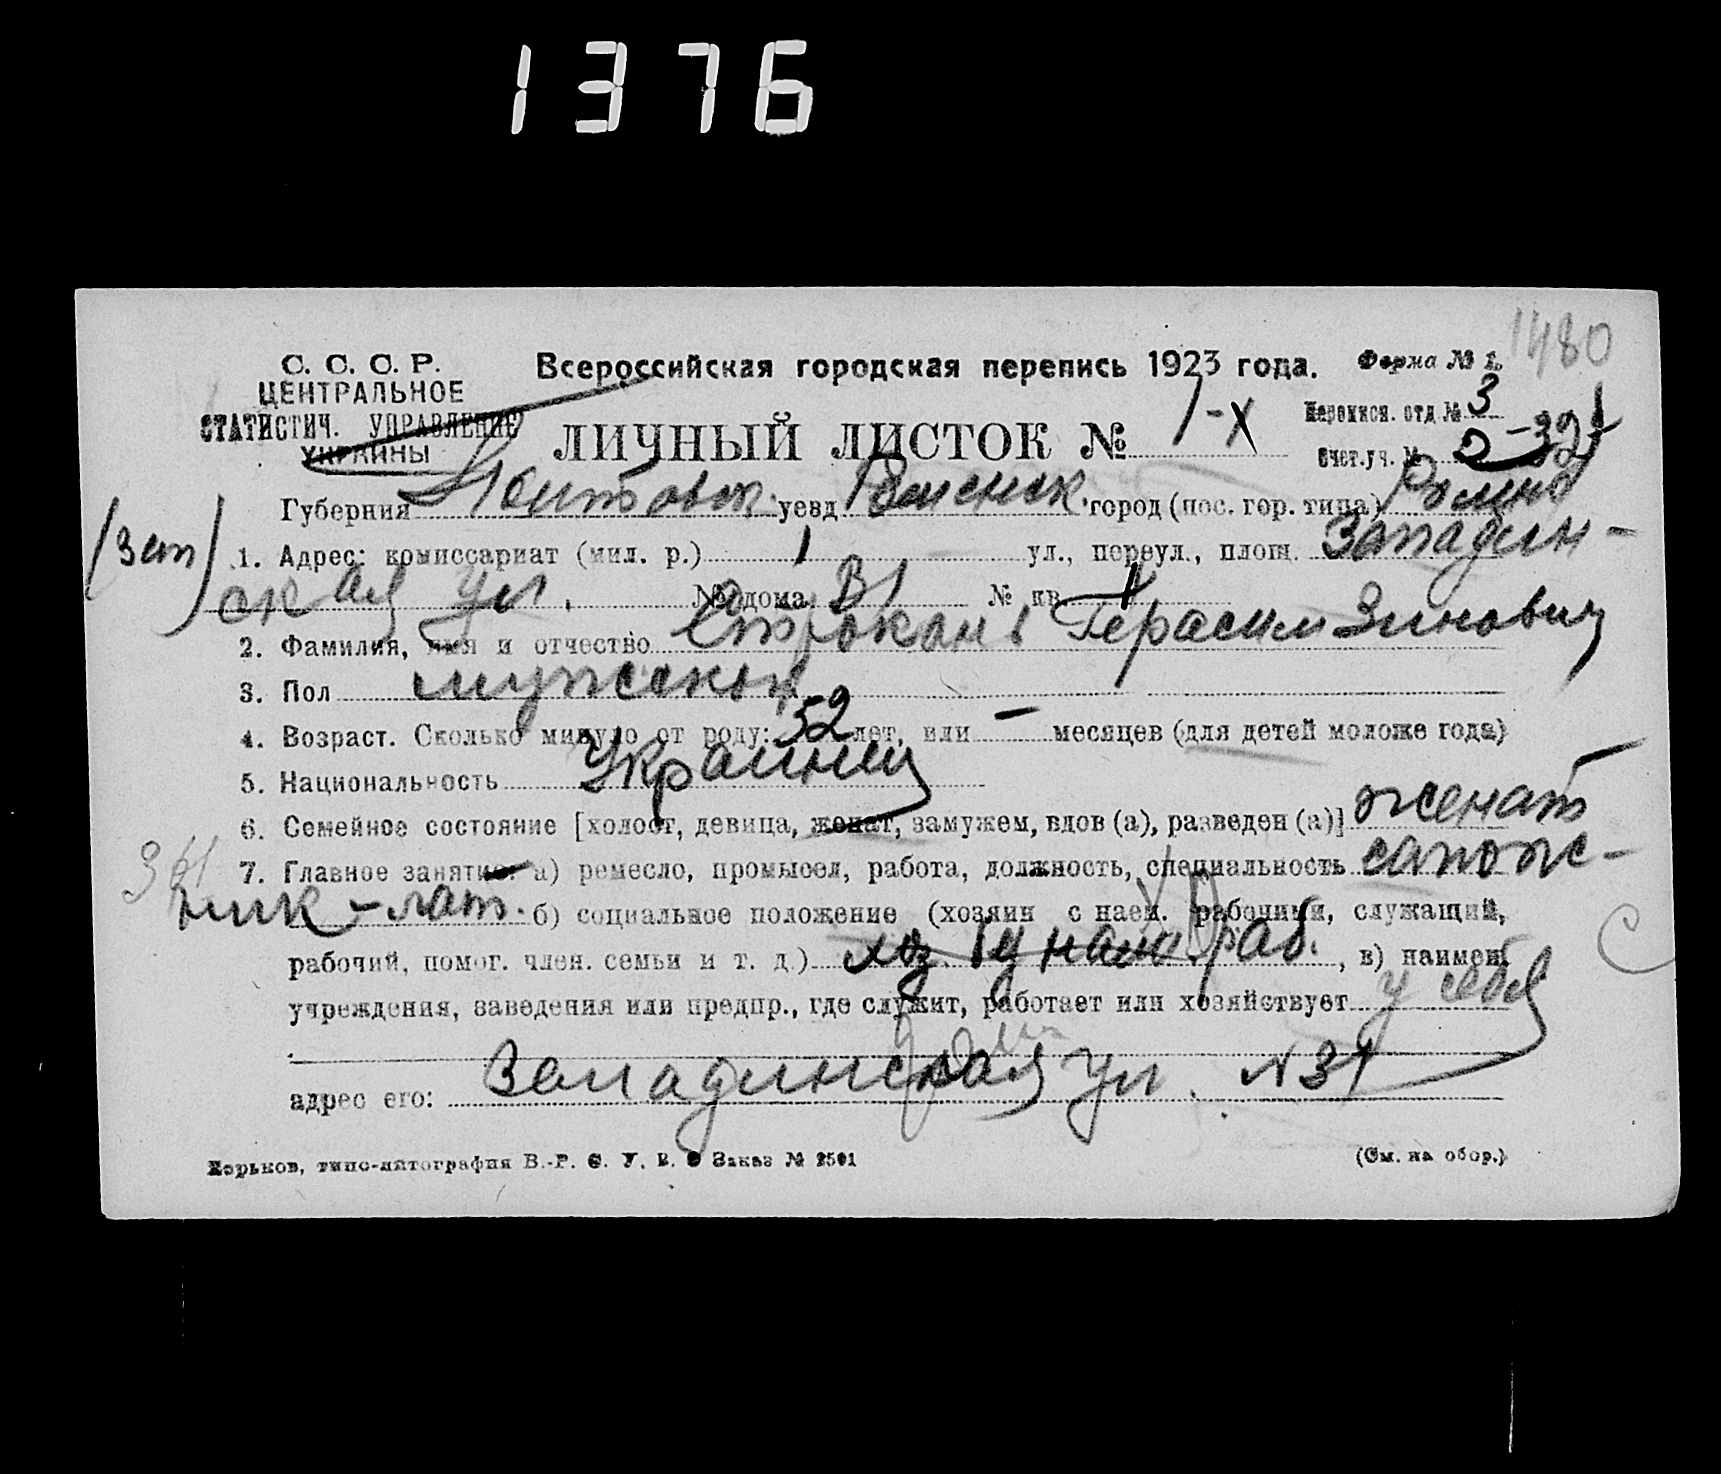 1376
1480
С. С. С. Р.
ЦЕНТРАЛЬНОЕ
СТАТИСТИЧ. УПРАВЛЕНИЕ
УКРАИНЫ
Всероссийская городская перепись 1923 года.
Форма № 1.
ЛИЧНЫЙ ЛИСТОК № 1-х
Переписн. отд. № 3
Счет. уч. №
Губерния Полтовск. уезд Роменск. город (пос. гор. типа) Ромны
(Зап) 1. Адрес: комиссариат (мил. р.) 1 ул., переул., площ. Западин-
ская ул. № дома 31 № кв. 1
2. Фамилия, имя и отчество Строкань Герасим Зинович
3. Пол мужской
4. Возраст. Сколько минуло от роду: 52 лет, или – месяцев (для детей моложе года)
5. Национальность Украинец
6. Семейное состояние [холост, девица, женат, замужем, вдов (а), разведен (а)] женат
7. Главное занятие: а) ремесло, промысел, работа, должность, специальность сапож-
ник - лат. б) социальное положение (хозяин с наем. рабочими, служащий,
рабочий, помог. член. семьи и т. д.) хоз. раб. , в) наимен.
учреждения, заведения или предпр., где служит, работает или хозяйствует у себя
адрес его: Западинская ул. № 31
Харьков, типо-литография В.-Р. С. У. В. О Заказ № 2501
(См. на обор.)